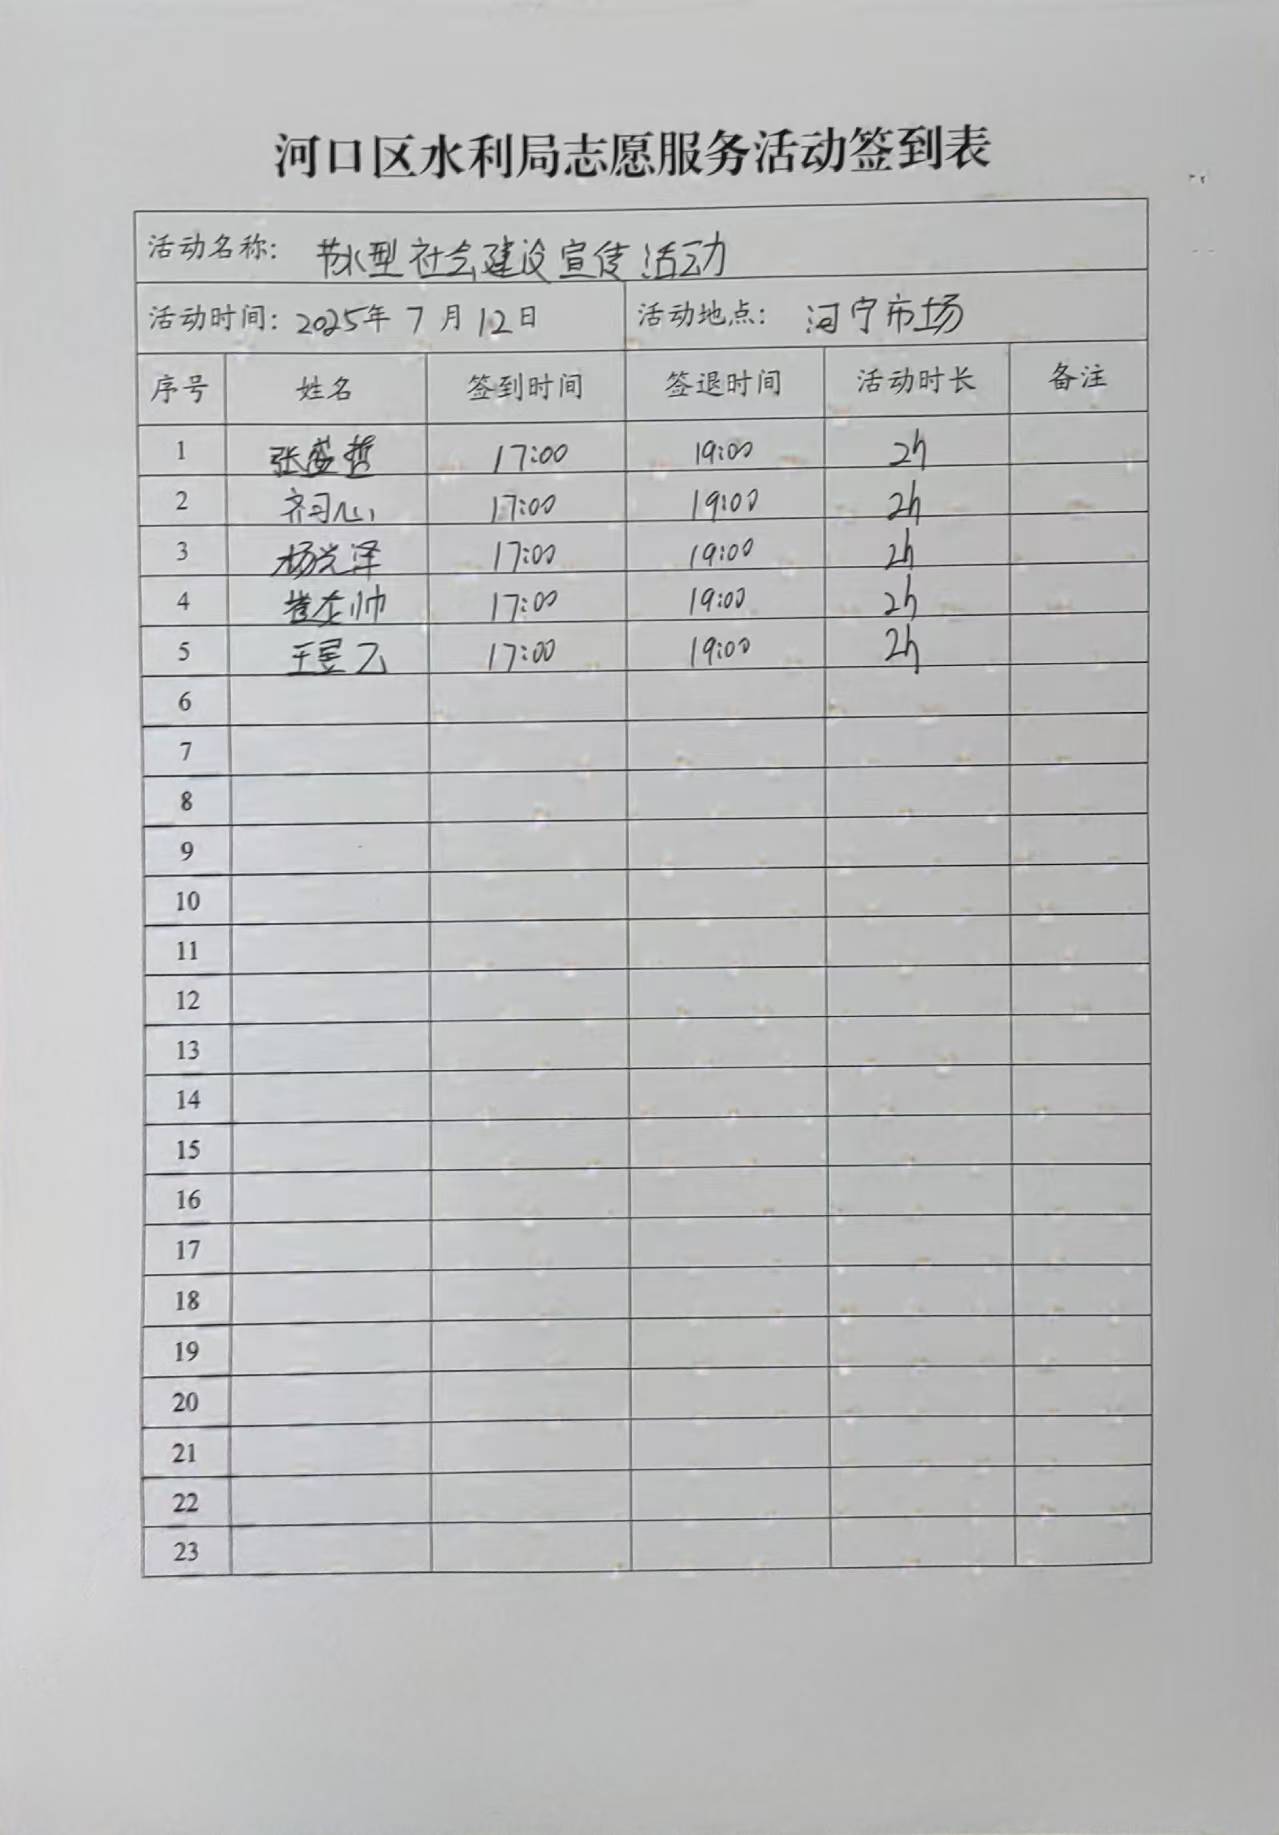 河口区水利局志愿服务活动签到表
活动名称: 节水型社会建设宣传活动
活动时间: 2025年7月12日 活动地点: 河宁市场
序号 姓名 签到时间 签退时间 活动时长 备注
1 张蓥哲 17:00 19:00 2h
2 齐习心 17:00 19:00 2h
3 杨光泽 17:00 19:00 2h
4 17:00 19:00 2h
5 王昱飞 17:00 19:00 2h
6
7
8
9
10
11
12
13
14
15
16
17
18
19
20
21
22
23